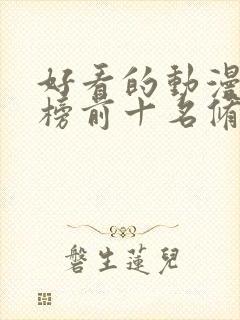 好看的動漫
榜前十名脩
磐生蓮兒